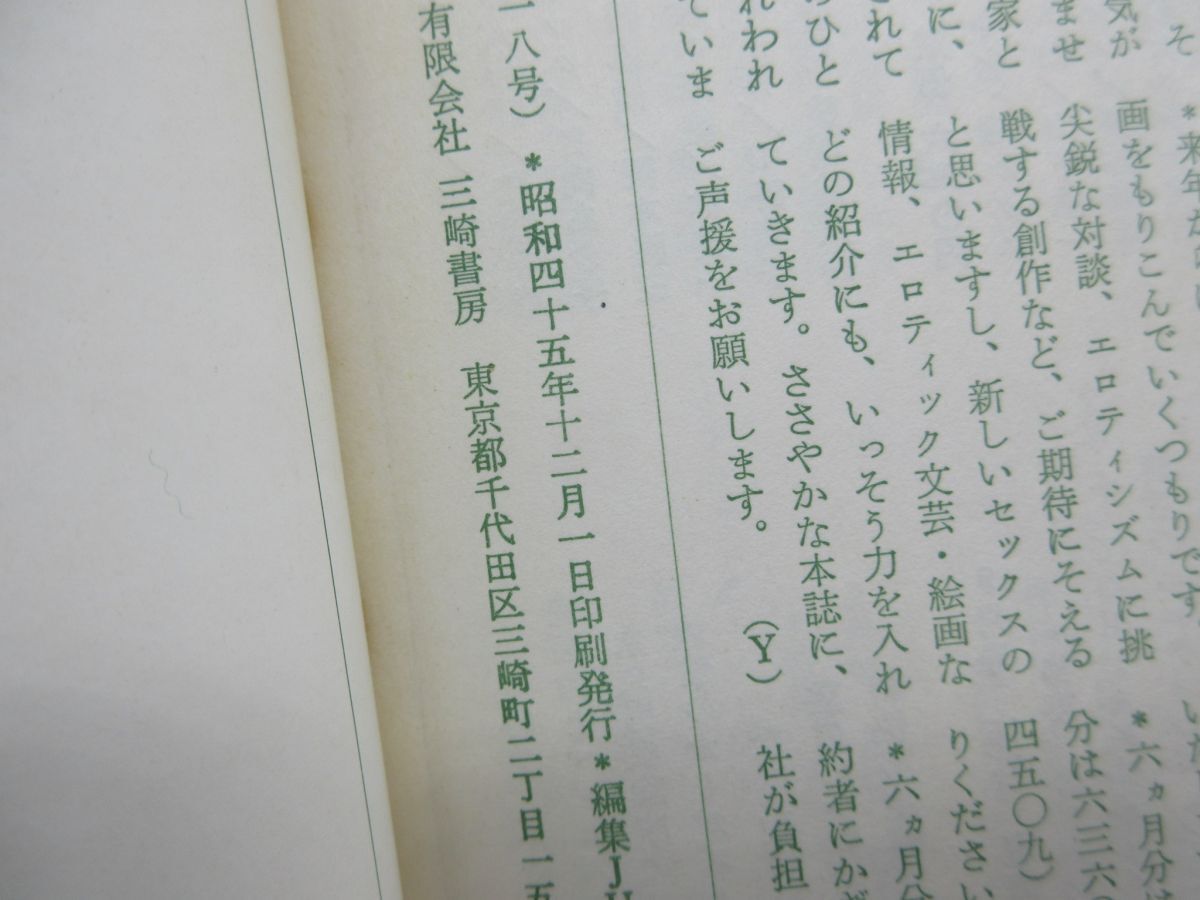 そ
気が
ませ
家と
に、
されて
のひと
れわれ
ていま
*来年か
画をもりこんでいくつもりです。
尖鋭な対談、エロティシズムに挑
戦する創作など、ご期待にそえる
と思いますし、新しいセックスの
情報、エロティック文芸・絵画な
どの紹介にも、いっそう力を入れ
ていきます。ささやかな本誌に、
ご声援をお願いします。 (Y)
*六ヵ月分は
分は六三六〇
四五〇九)
りください
*六ヵ月分
約者にかぎ
社が負担
一八号) *昭和四十五年十二月一日印刷発行*編集J
有限会社 三崎書房 東京都千代田区三崎町二丁目一五